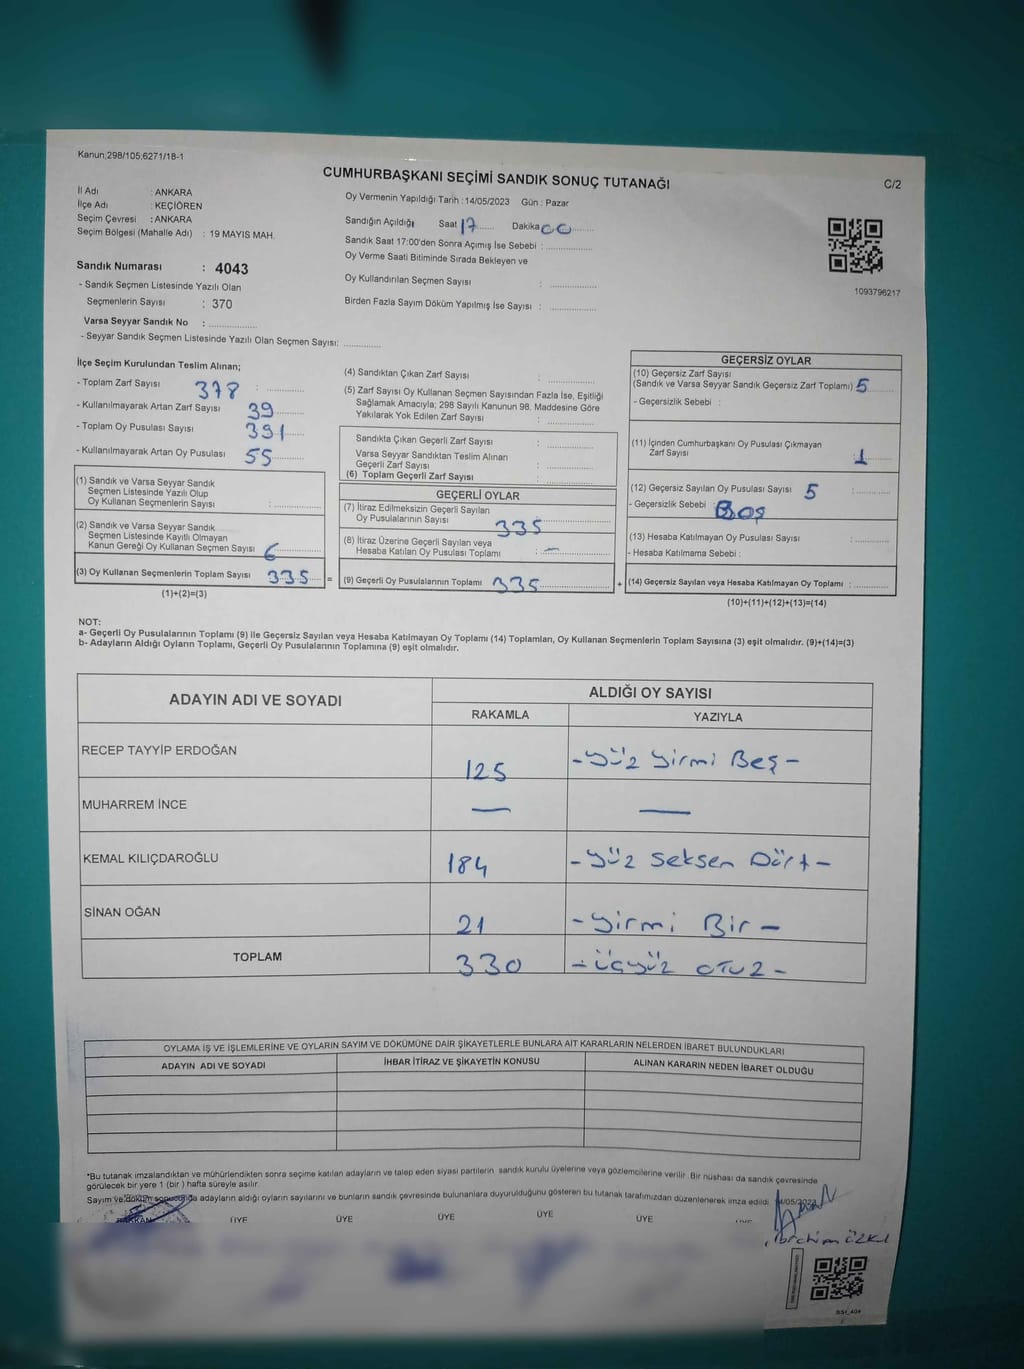 Kanun;298/105;6271/18-1
CUMHURBAŞKANI SEÇİMİ SANDIK SONUÇ TUTANAĞI
C/2
İl Adı : ANKARA
İlçe Adı : KEÇİÖREN
Seçim Çevresi : ANKARA
Seçim Bölgesi (Mahalle Adı) : 19 MAYIS MAH.
Sandık Numarası : 4043
- Sandık Seçmen Listesinde Yazılı Olan
Seçmenlerin Sayısı : 370
Varsa Seyyar Sandık No :
- Seyyar Sandık Seçmen Listesinde Yazılı Olan Seçmen Sayısı:
Oy Vermenin Yapıldığı Tarih : 14/05/2023 Gün : Pazar
Sandığın Açıldığı Saat 17 Dakika 00
Sandık Saat 17:00'den Sonra Açımış İse Sebebi :
Oy Verme Saati Bitiminde Sırada Bekleyen ve
Oy Kullandırılan Seçmen Sayısı :
Birden Fazla Sayım Döküm Yapılmış İse Sayısı :
1093796217
İlçe Seçim Kurulundan Teslim Alınan;
- Toplam Zarf Sayısı : 378
- Kullanılmayarak Artan Zarf Sayısı 39
- Toplam Oy Pusulası Sayısı 391
- Kullanılmayarak Artan Oy Pusulası 55
(1) Sandık ve Varsa Seyyar Sandık
Seçmen Listesinde Yazılı Olup
Oy Kullanan Seçmenlerin Sayısı :
(2) Sandık ve Varsa Seyyar Sandık
Seçmen Listesinde Kayıtlı Olmayan
Kanun Gereği Oy Kullanan Seçmen Sayısı 6
(3) Oy Kullanan Seçmenlerin Toplam Sayısı 335 =
(1)+(2)=(3)
(4) Sandıktan Çıkan Zarf Sayısı :
(5) Zarf Sayısı Oy Kullanan Seçmen Sayısından Fazla İse, Eşitliği
Sağlamak Amacıyla; 298 Sayılı Kanunun 98. Maddesine Göre
Yakılarak Yok Edilen Zarf Sayısı :
Sandıkta Çıkan Geçerli Zarf Sayısı :
Varsa Seyyar Sandıktan Teslim Alınan
Geçerli Zarf Sayısı :
(6) Toplam Geçerli Zarf Sayısı :
GEÇERLİ OYLAR
(7) İtiraz Edilmeksizin Geçerli Sayılan
Oy Pusulalarının Sayısı 335
(8) İtiraz Üzerine Geçerli Sayılan veya
Hesaba Katılan Oy Pusulası Toplamı : –
(9) Geçerli Oy Pusulalarının Toplamı 335 +
GEÇERSİZ OYLAR
(10) Geçersiz Zarf Sayısı
(Sandık ve Varsa Seyyar Sandık Geçersiz Zarf Toplamı) 5
- Geçersizlik Sebebi :
(11) İçinden Cumhurbaşkanı Oy Pusulası Çıkmayan
Zarf Sayısı 1
(12) Geçersiz Sayılan Oy Pusulası Sayısı 5 :
- Geçersizlik Sebebi Boş
(13) Hesaba Katılmayan Oy Pusulası Sayısı :
- Hesaba Katılmama Sebebi :
(14) Geçersiz Sayılan veya Hesaba Katılmayan Oy Toplamı :
(10)+(11)+(12)+(13)=(14)
NOT:
a- Geçerli Oy Pusulalarının Toplamı (9) ile Geçersiz Sayılan veya Hesaba Katılmayan Oy Toplamı (14) Toplamları, Oy Kullanan Seçmenlerin Toplam Sayısına (3) eşit olmalıdır. (9)+(14)=(3)
b- Adayların Aldığı Oyların Toplamı, Geçerli Oy Pusulalarının Toplamına (9) eşit olmalıdır.
ADAYIN ADI VE SOYADI ALDIĞI OY SAYISI
RAKAMLA YAZIYLA
RECEP TAYYİP ERDOĞAN 125 -yüz yirmi Beş-
MUHARREM İNCE — —
KEMAL KILIÇDAROĞLU 184 -yüz seksen Dört-
SİNAN OĞAN 21 -yirmi Bir-
TOPLAM 330 -üçyüz otuz-
OYLAMA İŞ VE İŞLEMLERİNE VE OYLARIN SAYIM VE DÖKÜMÜNE DAİR ŞİKAYETLERLE BUNLARA AİT KARARLARIN NELERDEN İBARET BULUNDUKLARI
ADAYIN ADI VE SOYADI İHBAR İTİRAZ VE ŞİKAYETİN KONUSU ALINAN KARARIN NEDEN İBARET OLDUĞU
*Bu tutanak imzalandıktan ve mühürlendikten sonra seçime katılan adayların ve talep eden siyasi partilerin sandık kurulu üyelerine veya gözlemcilerine verilir. Bir nüshası da sandık çevresinde
görülecek bir yere 1 (bir) hafta süreyle asılır.
Sayım ve döküm sonucunda adayların aldığı oyların sayılarını ve bunların sandık çevresinde bulunanlara duyurulduğunu gösteren bu tutanak tarafımızdan düzenlenerek imza edildi.
BAŞKAN ÜYE ÜYE ÜYE ÜYE ÜYE